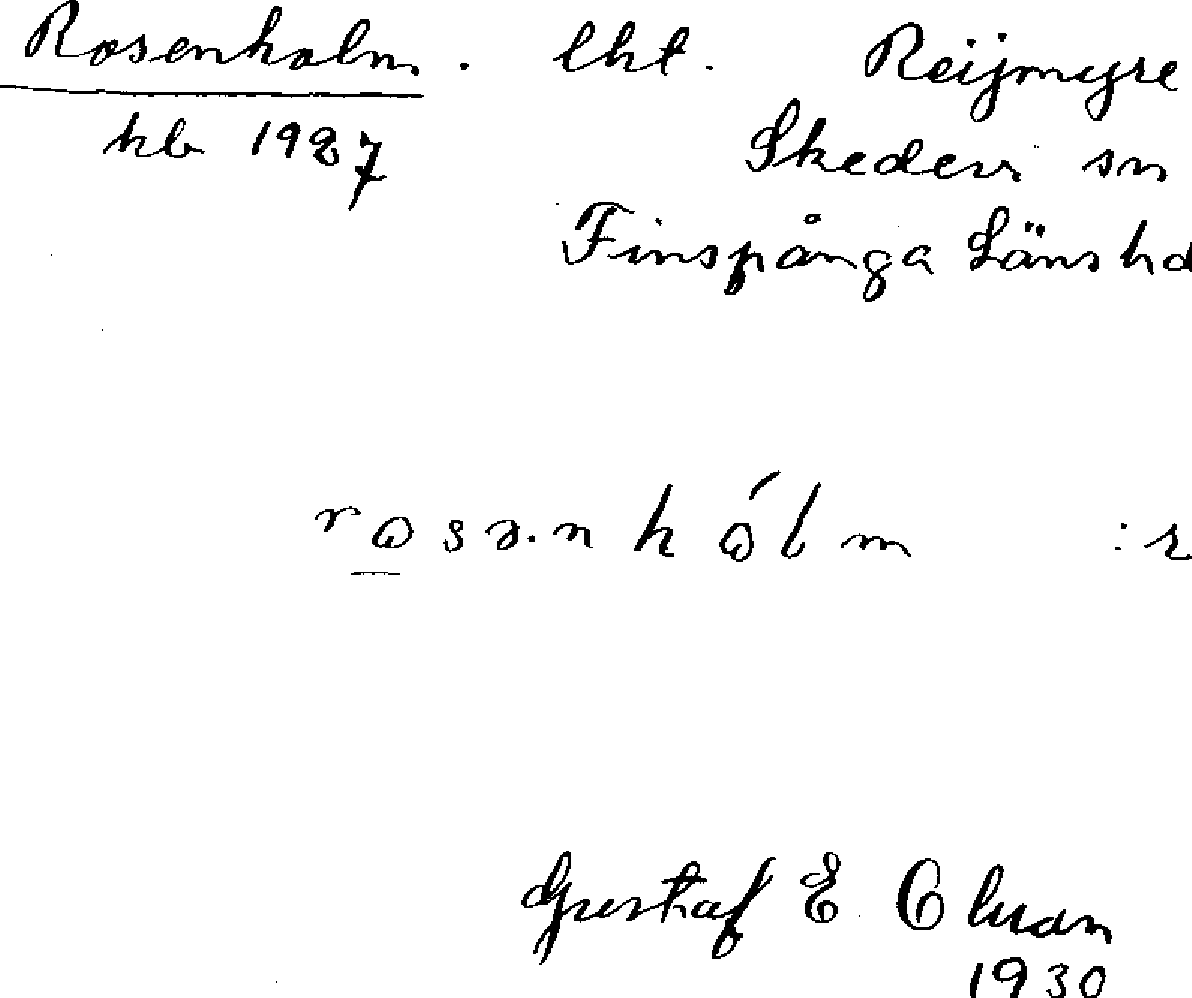 Rosenholm. lht. Reijmyre
kb 1927 Skedevi sn
Finspånga Läns hd
rosə.nhólm :r
Gustaf E
1930